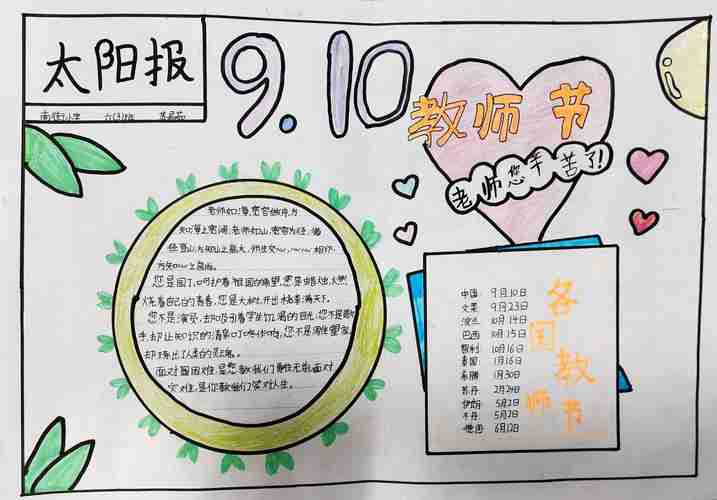 太阳报
南街小学 六(3)班
9.10
教师节
老师您辛苦了!
老师如海,宽容做舟,方
知海之宽阔;老师如山,宽容为径,循
径登山,方知山之高大,师生交心,心心相印,
方知心之高尚。
您是园丁,呵护着祖国的希望,您是蜡烛,燃
烧着自己的青春,您是大树,开出桃李满天下。
您不是演员,却吸引着学生饥渴的目光,您不是歌
手,却让知识的清泉叮咚作响,您不是雕塑家,
却
面对困难,是您教我们勇往无前,面对
灾难,是您教我们笑对人生。
各国教师节
中国: 9月10日
文莱: 9月23日
波兰: 10月14日
巴西: 10月15日
智利: 10月16日
泰国: 1月16日
希腊: 1月30日
苏丹: 2月24日
伊朗: 5月2日
不丹: 5月2日
德国: 6月12日